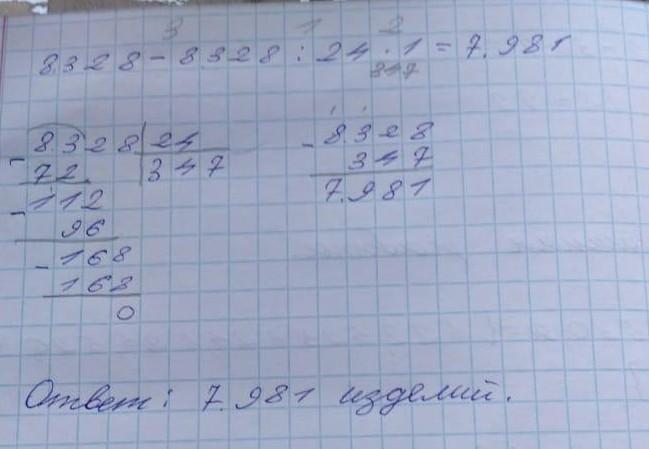 3 1 2
8.328 - 8.328 : 24 · 1 = 7.981
347
8.328 | 24
- 72 347
- 112
96
- 168
168
0
- 8.328
347
7.981
Ответ: 7.981 изделий.